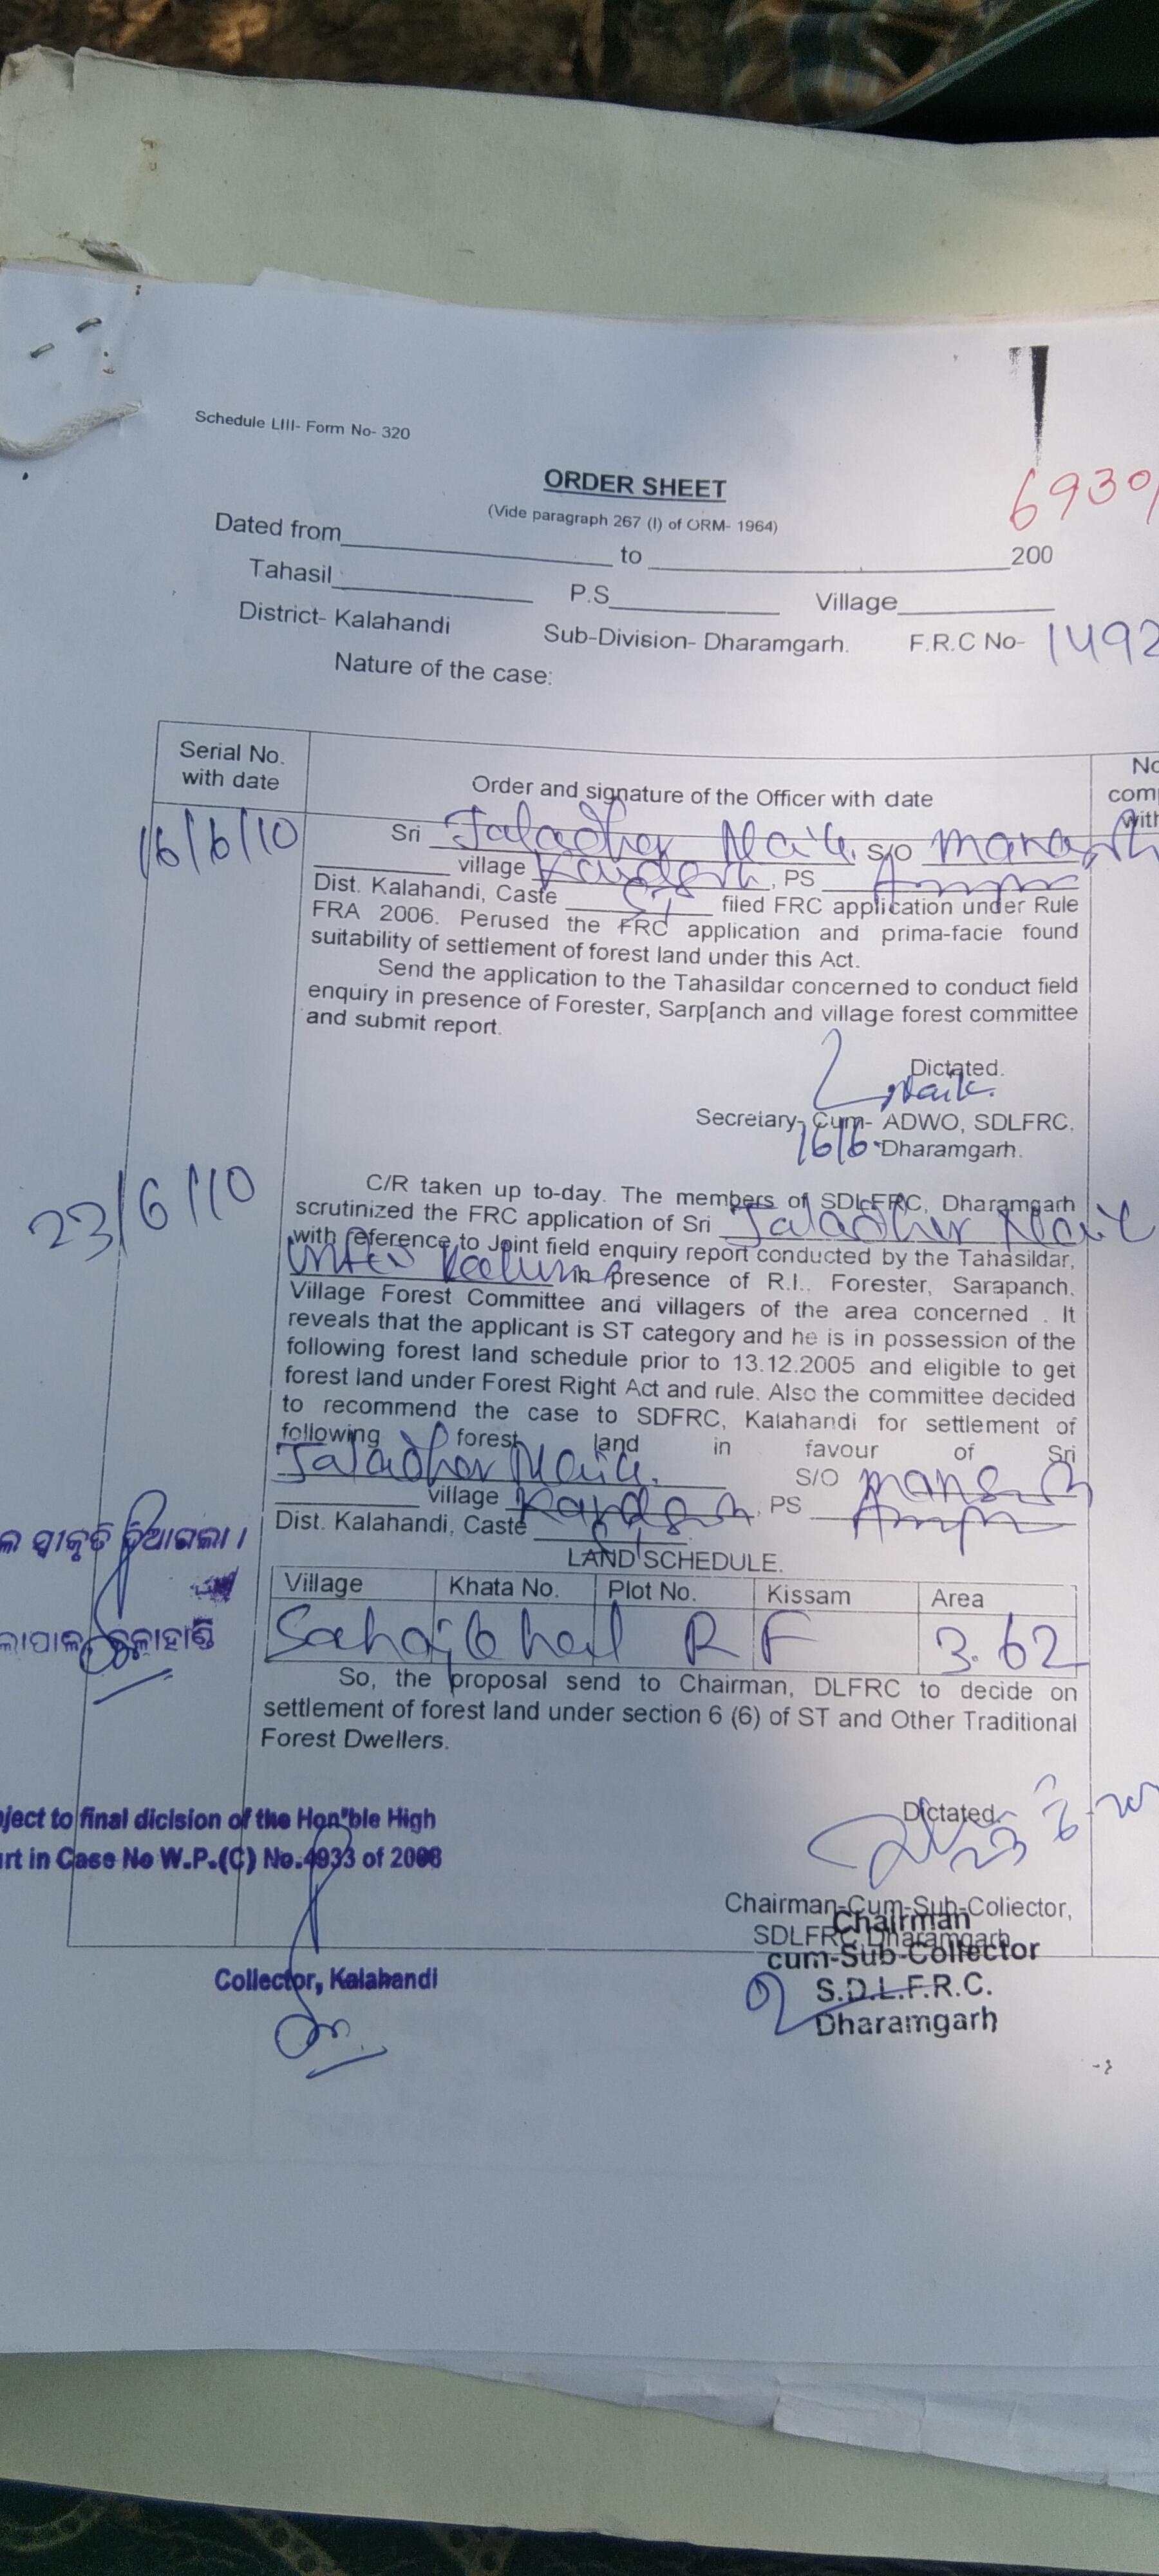 Schedule LIII- Form No- 320
ORDER SHEET
(Vide paragraph 267 (I) of ORM- 1964)
6930/
Dated from to 200
Tahasil P.S Village
District- Kalahandi Sub-Division- Dharamgarh. F.R.C No- 1492
Nature of the case:
Serial No. with date
Order and signature of the Officer with date
16/6/10
Sri Jaladhar Naik, S/O
village , PS
Dist. Kalahandi, Caste ST filed FRC application under Rule
FRA 2006. Perused the FRC application and prima-facie found
suitability of settlement of forest land under this Act.
Send the application to the Tahasildar concerned to conduct field
enquiry in presence of Forester, Sarp[anch and village forest committee
and submit report.
Dictated.
Naik
Secretary- Cum- ADWO, SDLFRC,
16/6 Dharamgarh.
23/6/10
C/R taken up to-day. The members of SDLFRC, Dharamgarh
scrutinized the FRC application of Sri Jaladhar Naik
with reference to Joint field enquiry report conducted by the Tahasildar,
in presence of R.I., Forester, Sarapanch,
Village Forest Committee and villagers of the area concerned . It
reveals that the applicant is ST category and he is in possession of the
following forest land schedule prior to 13.12.2005 and eligible to get
forest land under Forest Right Act and rule. Also the committee decided
to recommend the case to SDFRC, Kalahandi for settlement of
following forest land in favour of Sri
Jaladhar Naik. S/O
village , PS
Dist. Kalahandi, Caste ST
LAND SCHEDULE.
Village Khata No. Plot No. Kissam Area
RF 3.62
So, the proposal send to Chairman, DLFRC to decide on
settlement of forest land under section 6 (6) of ST and Other Traditional
Forest Dwellers.
ଲ ସ୍ୱୀକୃତି ଦିଆଗଲା ।
ଲାପାଳ, କଳାହାଣ୍ଡି
ject to final dicision of the Hon"ble High
rt in Case No W.P.(C) No.4933 of 2008
Collector, Kalahandi
Dictated.
Chairman-Cum-Sub-Collector,
SDLFRC, Dharamgarh
Chairman
cum-Sub-Collector
S.D.L.F.R.C.
Dharamgarh